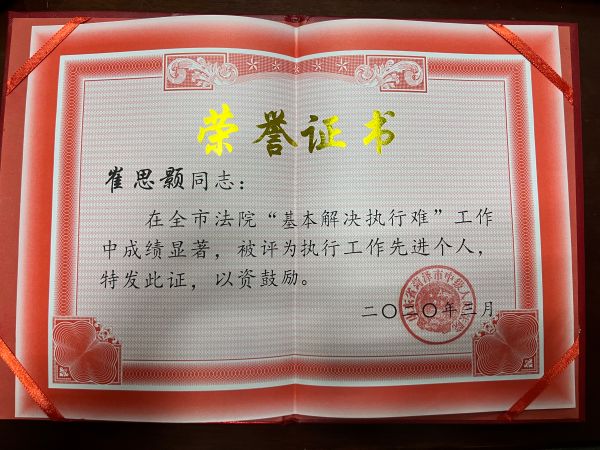 荣誉证书
崔思颢同志：
在全市法院“基本解决执行难”工作
中成绩显著，被评为执行工作先进个人，
特发此证，以资鼓励。
二〇二〇年三月
山东省菏泽市中级人民法院